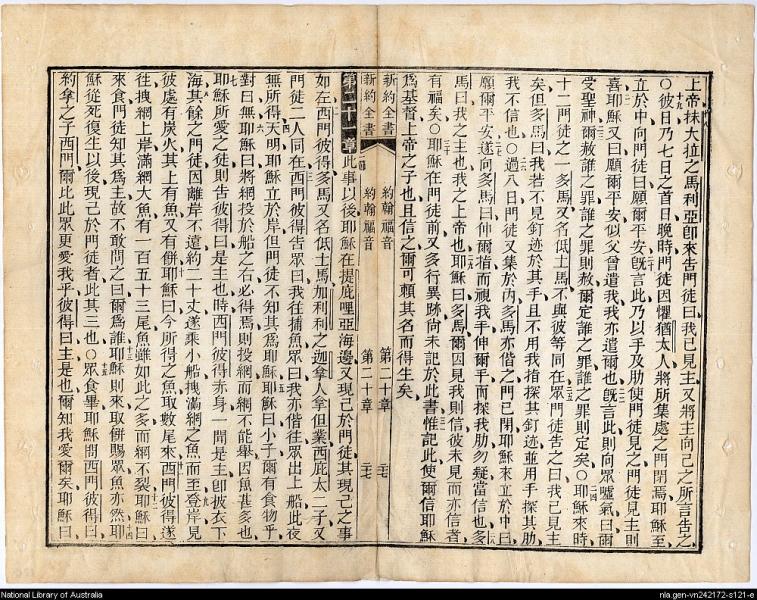 上帝抹大拉之馬利亞卽來告門徒曰我已見主又將主向己之所言告之
○彼日乃七日之首日晚時門徒因懼猶太人將所集處之門閉焉耶穌至
立於中向門徒曰願爾平安旣言此乃以手及肋使門徒見之門徒見主則
喜耶穌又曰願爾平安似父曾遣我我亦遣爾也旣言此則向眾噓氣曰爾
受聖神爾赦誰之罪誰之罪則赦爾定誰之罪誰之罪則定矣○耶穌來時
十二門徒之一多馬又名低土馬不與彼等同在眾門徒告之曰我已見主
矣但多馬曰我若不見釘迹於其手且不用我指探其釘迹並用手探其肋
我不信也○過八日門徒又集於內多馬亦偕之門已閉耶穌來立於中曰
願爾平安遂向多馬曰伸爾指而視我手伸爾手而探我肋勿疑當信也多
馬曰我之主也我之上帝也耶穌曰多馬爾因見我則信彼未見而亦信者
有福矣○耶穌在門徒前又多行異跡尚未記於此書惟記此使爾信耶穌
爲基督上帝之子也且信之爾可賴其名而得生矣
新約全書 約翰福音 第二十章 二七
新約全書 約翰福音 第二十章 二七
第二十一章此事以後耶穌在提庇哩亞海邊又現己於門徒其現己之事
如左西門彼得多馬又名低土馬加利利之迦拿人拿但業西庇太二子又
門徒二人同在西門彼得告眾曰我往捕魚眾曰我亦偕往眾出上船此夜
無所得天明耶穌立於岸但門徒不知其爲耶穌耶穌曰小子爾有食物乎
對曰無耶穌曰將網投於船之右必得焉則投網而網不能舉因魚甚多也
耶穌所愛之徒則告彼得曰是主也時西門彼得赤身一聞是主卽披衣下
海其餘之門徒因離岸不遠約二十丈遂乘小船拽滿網之魚而至登岸見
彼處有炭火其上有魚又有餅耶穌曰今所得之魚取數尾來西門彼得遂
往拽網上岸滿網大魚有一百五十三尾魚雖如此之多而網不裂耶穌曰
來食門徒知其爲主故不敢問之曰爾爲誰耶穌則來取餅賜眾魚亦然耶
穌從死復生以後現己於門徒者此其三也○眾食畢耶穌問西門彼得曰
約拿之子西門爾比此眾更愛我乎彼得曰主是也爾知我愛爾矣耶穌曰
National Library of Australia
nla.gen-vn242172-s121-e